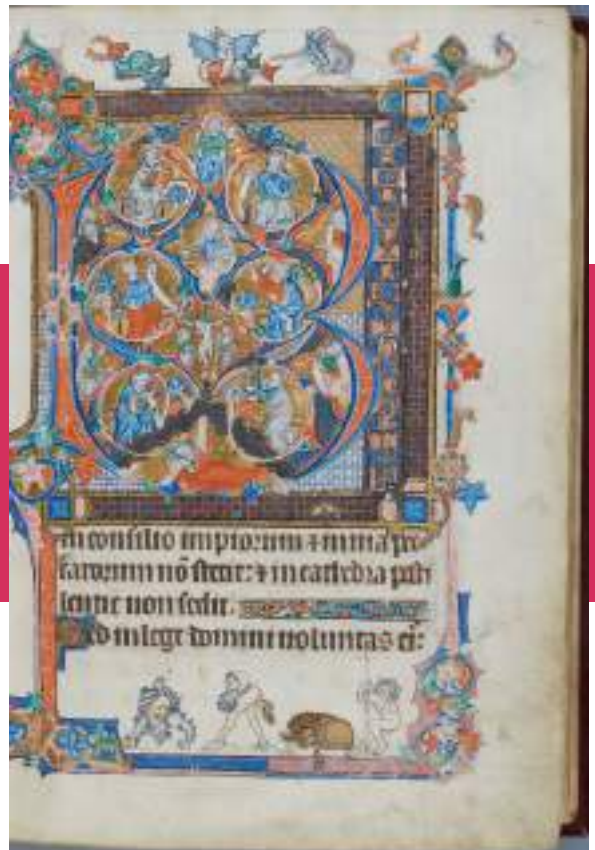 B
in consilio impiorum ⁊ in uia pec
catorum nō stetit: ⁊ in cathedra pesti
lentie non sedit.
Sed in lege domini uoluntas ei: